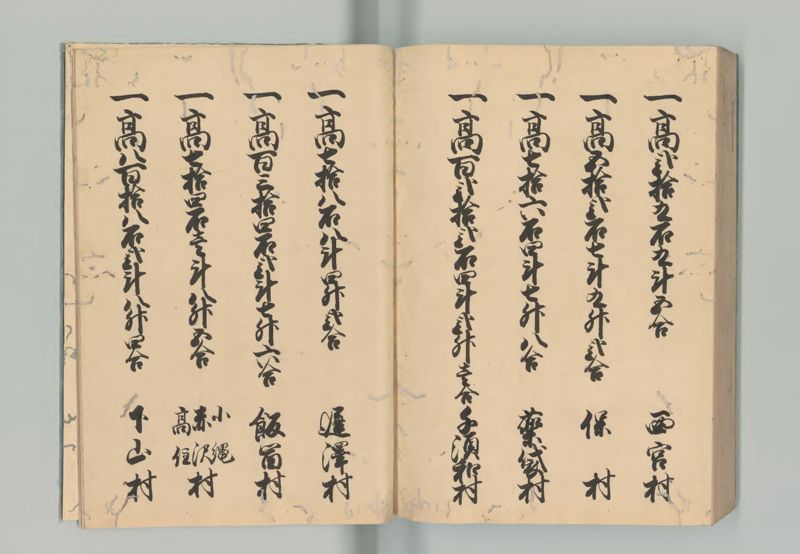 一高弐拾九石九斗五合 西宮村
一高五拾弐石七斗九升弐合 保村
一高七拾六石四斗七升八合 薬袋村
一高百弐拾弐石四斗弐升壱合 千須和村
一高七拾八石八斗四升弐合 遅澤村
一高百三拾四石弐斗七升六合 飯冨村
一高七拾四石壱斗八升五合 小縄赤沢高住村
一高八百拾八石弐斗八升四合 下山村